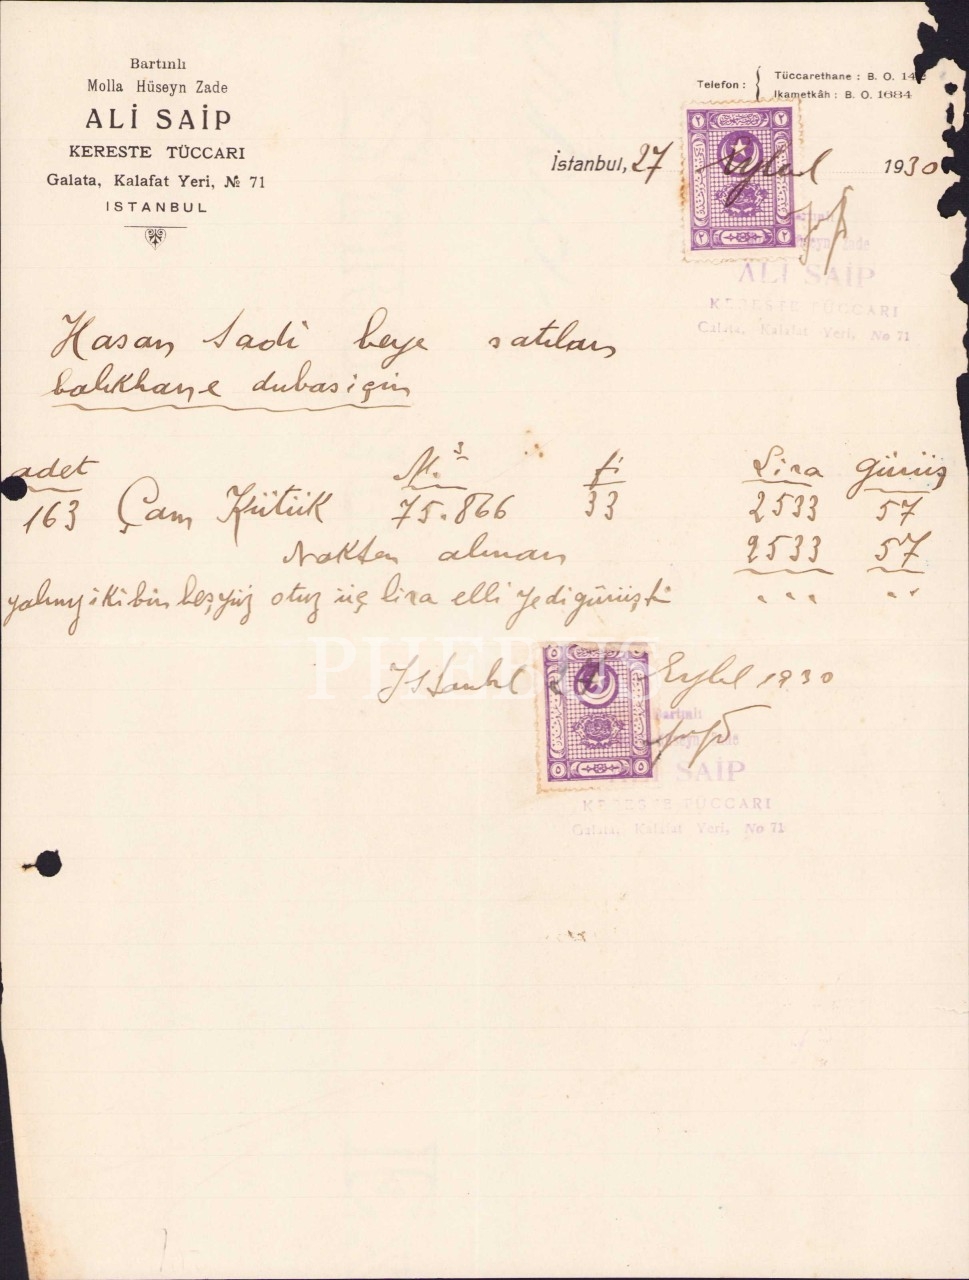 Bartınlı
Molla Hüseyn Zade
ALİ SAİP
KERESTE TÜCCARI
Galata, Kalafat Yeri, № 71
ISTANBUL
Telefon :
Tüccarethane : B. O.
Ikametkâh : B. O. 1684
İstanbul, 27 Eylul 1930
٢ ٢
٢ ٢
Bartınlı
Hüseyn Zade
ALİ SAİP
KERESTE TÜCCARI
Galata, Kalafat Yeri, No 71
Hasan Sadi beye satılan
balıkhane dubasiçin
adet M.3 f. Lira Gürüş
163 Çam Kütük 75.866 33 2533 57
Nakten alınan 2533 57
yalınız iki bin beşyüz otuz üç lira elli yedi gürüştür
PHEBUS
Istanbul Eylul 1930
٥ ٥
٥ ٥
Bartınlı
ALİ SAİP
KERESTE TÜCCARI
Galata, Kalafat Yeri, No 71